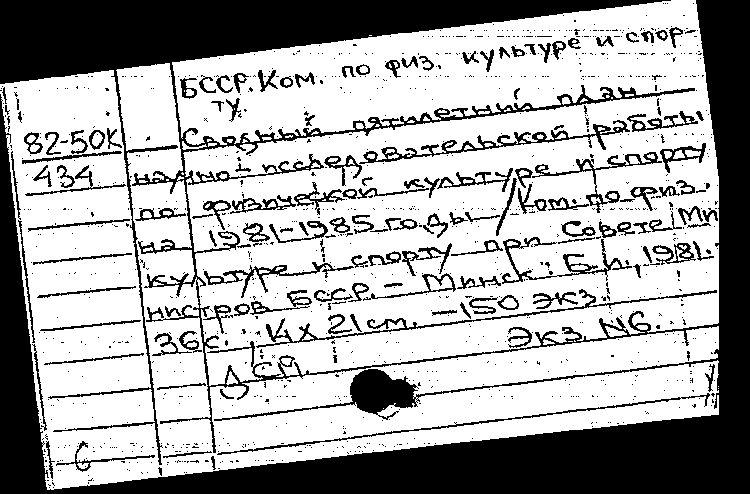 БССР. Ком. по физ. культуре и спор-
ту.
82-50К Сводный пятилетний план
434 научно-исследовательской работы
по физической культуре и спорту
на 1981-1985 годы / Ком. по физ.
культуре и спорту при Совете Ми
нистров БССР. - Минск: Б.и., 1981. -
36с.; 14 х 21 см. - 150 экз.
Экз. N6.
ДСП.
6